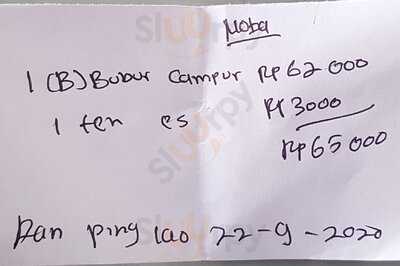 Moba
1 (B) Bubur Campur Rp 62 000
1 teh es Rp 3000
Rp 65 000
Pan ping lao 22-9-2020
sluurpy